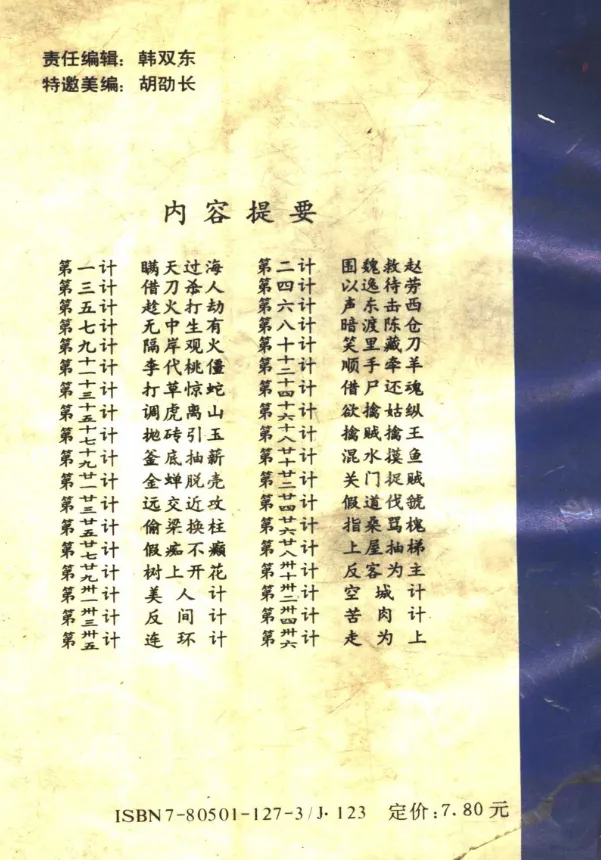 责任编辑：韩双东
特邀美编：胡劭长
内容提要
第一计 瞒天过海 第二计 围魏救赵
第三计 借刀杀人 第四计 以逸待劳
第五计 趁火打劫 第六计 声东击西
第七计 无中生有 第八计 暗渡陈仓
第九计 隔岸观火 第十计 笑里藏刀
第十一计 李代桃僵 第十二计 顺手牵羊
第十三计 打草惊蛇 第十四计 借尸还魂
第十五计 调虎离山 第十六计 欲擒姑纵
第十七计 抛砖引玉 第十八计 擒贼擒王
第十九计 釜底抽薪 第廿十计 混水摸鱼
第廿一计 金蝉脱壳 第廿二计 关门捉贼
第廿三计 远交近攻 第廿四计 假道伐虢
第廿五计 偷梁换柱 第廿六计 指桑骂槐
第廿七计 假痴不癫 第廿八计 上屋抽梯
第廿九计 树上开花 第卅十计 反客为主
第卅一计 美人计 第卅二计 空城计
第卅三计 反间计 第卅四计 苦肉计
第卅五计 连环计 第卅六计 走为上
ISBN7-80501-127-3/J·123 定价：7.80元